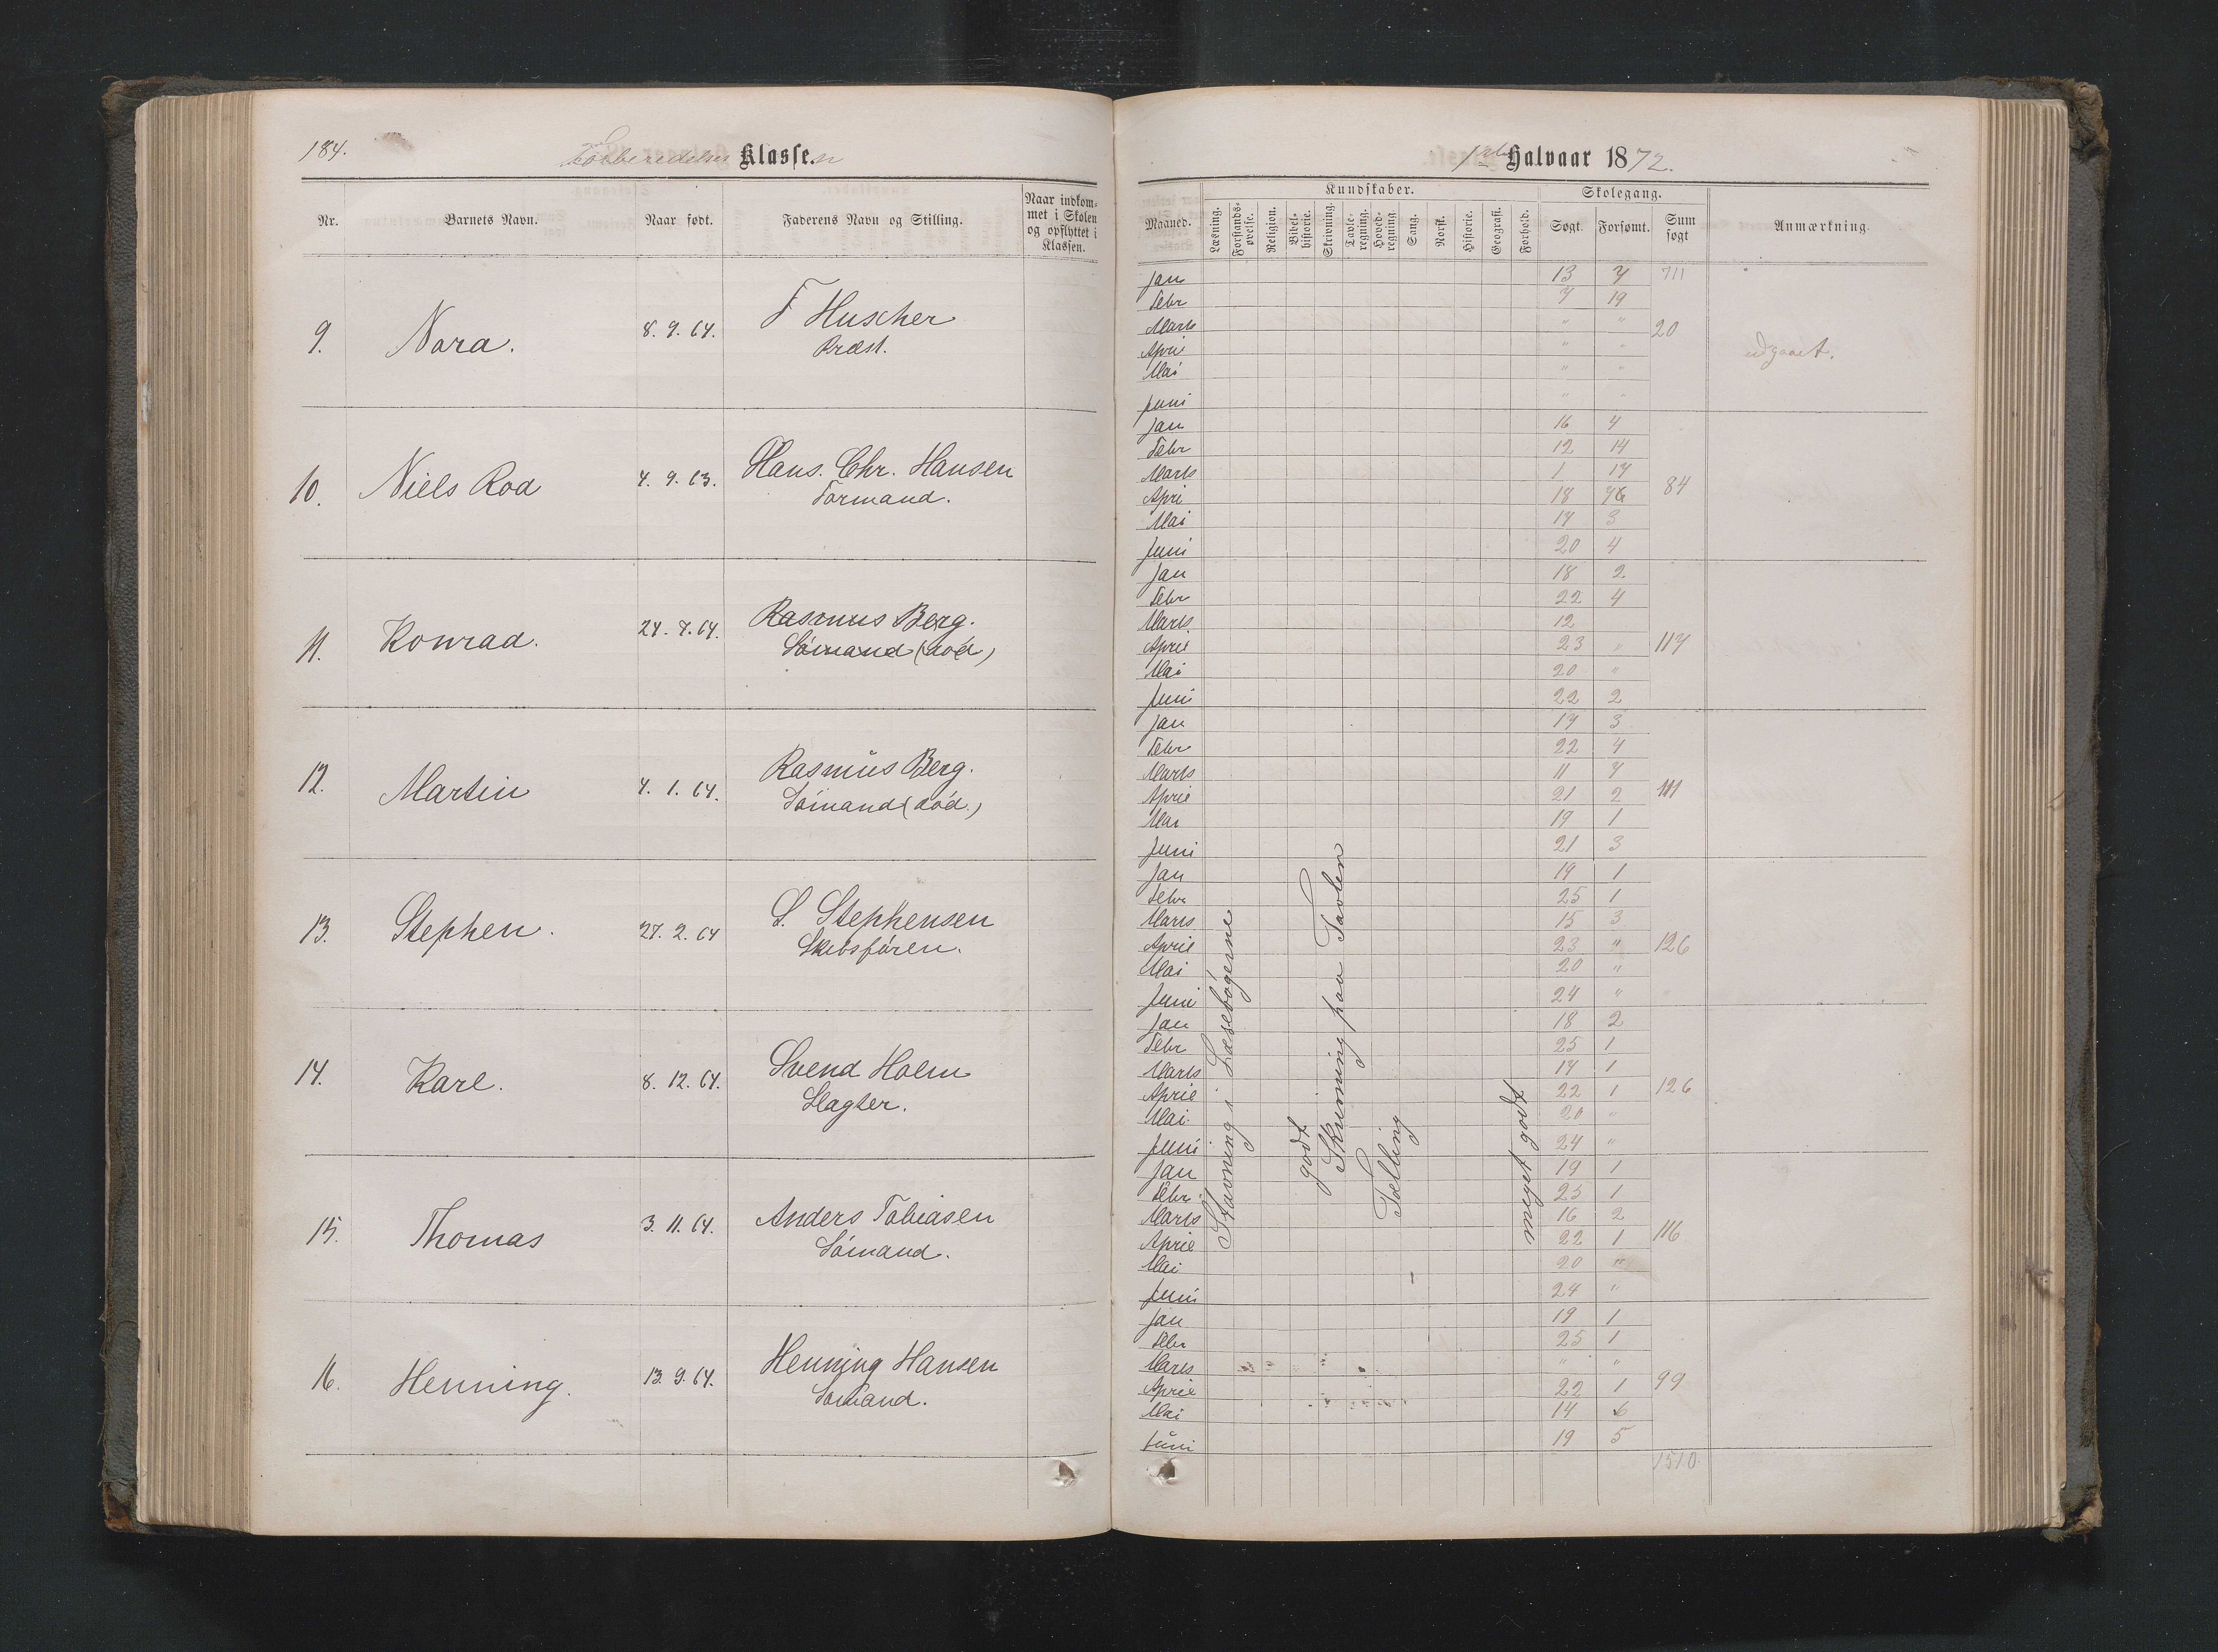 184.
Forberedelses Klassen
Nr.
Barnets Navn.
Naar født.
Faderens Navn og Stilling.
Naar indkom-
met i Skolen
og opflyttet i
Klassen.
9.
Nora.
8. 9. 64.
F Huscher
Præst.
10.
Niels Roa
4. 9. 63.
Hans. Chr. Hansen
Formand.
11.
Konrad.
24. 7. 64.
Rasmus Berg.
Sömand (död)
12.
Martin
4. 1. 64.
Rasmus Berg.
Sömand (död.)
13.
Stephen.
27. 2. 64
S. Stephensen
Skibsfören.
14.
Karl.
8. 12. 64.
Svend Holm
Slagter.
15.
Thomas
3. 11. 64.
Anders Tobiasen
Sömand.
16.
Henning.
13. 9. 64.
Henning Hansen
Sömand.
1ste Halvaar 1872.
Maaned.
Kundskaber.
Læsning.
Forstands-
øvelse.
Religion.
Bibel-
historie.
Skrivning.
Tavle-
regning.
Hoved-
regning
Sang.
Norsk.
Historie.
Geografi.
Forhold.
Skolegang.
Søgt.
Forsømt.
Sum
søgt
Anmærkning.
711
Jan 13 7
Febr 7 19
Marts " "
April " "
Mai " "
Juni " "
20
udgaaet.
Jan 16 4
Febr 12 14
Marts 1 17
April 18
Mai 17 3
Juni 20 4
84
Jan 18 2
Febr 22 4
Marts 12
April 23 "
Mai 20 "
Juni 22 2
117
Jan 17 3
Febr 22 4
Marts 11 7
April 21 2
Mai 19 1
Juni 21 3
111
Jan 19 1
Febr 25 1
Marts 15 3
April 23 "
Mai 20 "
Juni 24 "
126
Jan 18 2
Febr 25 1
Marts 17 1
April 22 1
Mai 20 "
Juni 24 "
126
Jan 19 1
Febr 25 1
Marts 16 2
April 22 1
Mai 20 "
Juni 24 "
116
Jan 19 1
Febr 25 1
Marts " "
April 22 1
Mai 14 6
Juni 19 5
99
1510
Stavning i Læsebögerne
godt
Skrivning paa Tavlen
Tælling
meget godt